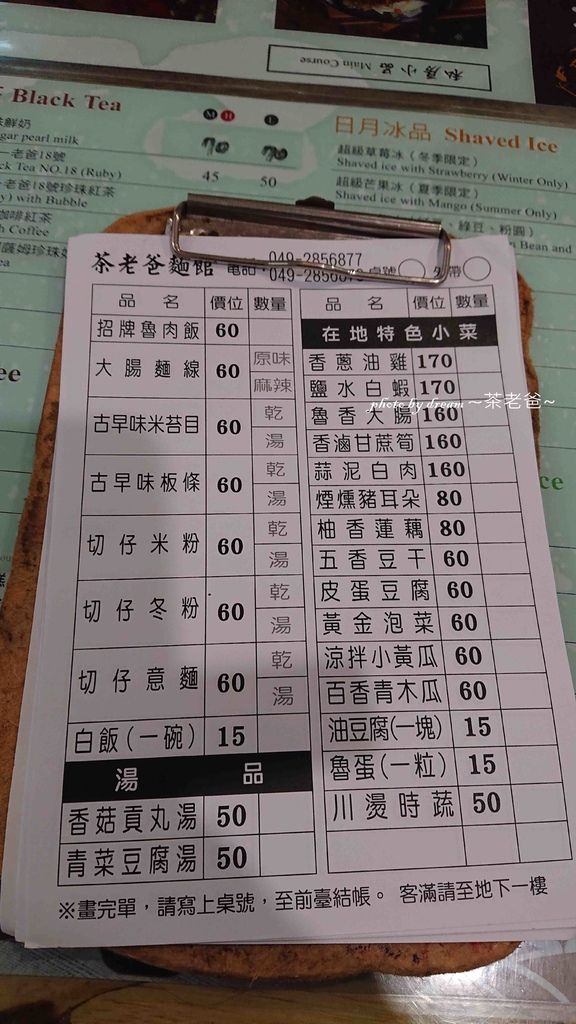 私房小品 Main Course
Black Tea
M H L
味鮮奶
gar pearl milk
70 70
一老爸18號
ck Tea NO.18 (Ruby)
45 50
一老爸18號珍珠紅茶
y) with Bubble
咖啡紅茶
h Coffee
日月冰品 Shaved Ice
超級草莓冰（冬季限定）
Shaved ice with Strawberry (Winter Only)
超級芒果冰（夏季限定）
Shaved ice with Mango (Summer Only)
、綠豆、粉圓）
Bean and
ee
ce
茶老爸麵館 電話：049-2856877
桌號 外帶
品名 價位 數量
招牌魯肉飯 60
大腸麵線 60 原味
麻辣
古早味米苔目 60 乾
湯
古早味板條 60 乾
湯
切仔米粉 60 乾
湯
切仔冬粉 60 乾
湯
切仔意麵 60 乾
湯
白飯(一碗) 15
湯品
香菇貢丸湯 50
青菜豆腐湯 50
品名 價位 數量
在地特色小菜
香蔥油雞 170
鹽水白蝦 170
魯香大腸 160
香滷甘蔗筍 160
蒜泥白肉 160
煙燻豬耳朵 80
柚香蓮藕 80
五香豆干 60
皮蛋豆腐 60
黃金泡菜 60
涼拌小黃瓜 60
百香青木瓜 60
油豆腐(一塊) 15
魯蛋(一粒) 15
川燙時蔬 50
photo by dream ~茶老爸~
※畫完單，請寫上桌號，至前臺結帳。 客滿請至地下一樓